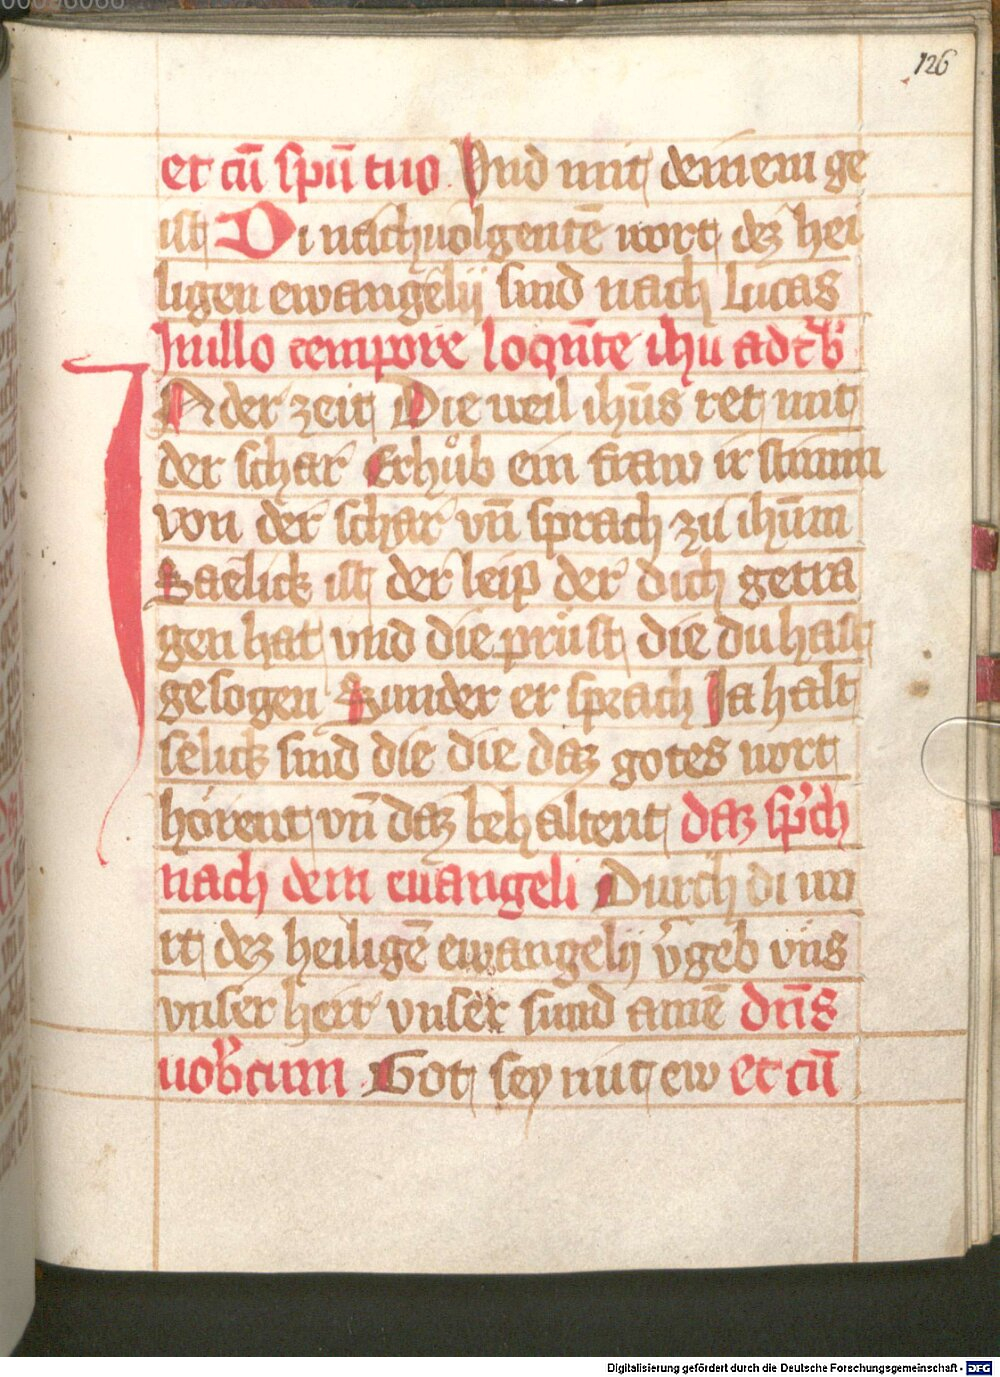 126
et cū spū tuo Vnd mit deinem ge
ist Di nachuolgentē wort dez hei
ligen ewangelij sind nach Lucas
In illo tempore loqūte ihu ad
N der zeit Die weil ihūs ret mit
der schar Erhůb ein fraw ir stimm
von der schar vn̄ sprach zu ihūm
Saelick ist der leip der dich getra
gen hat vnd die prüst die du hast
gesogen Sunder er sprach Ja halt
selick sind die die daz gotes wort
hörent vn̄ daz behaltent daz sp̄ch
nach dem euangeli Durch di wo
rt dez heiligē ewangelij v̄geb vns
vnser herr vnser sund amē dn̄s
uob̄cum Got sey mit ew et cū
Digitalisierung gefördert durch die Deutsche Forschungsgemeinschaft - DFG